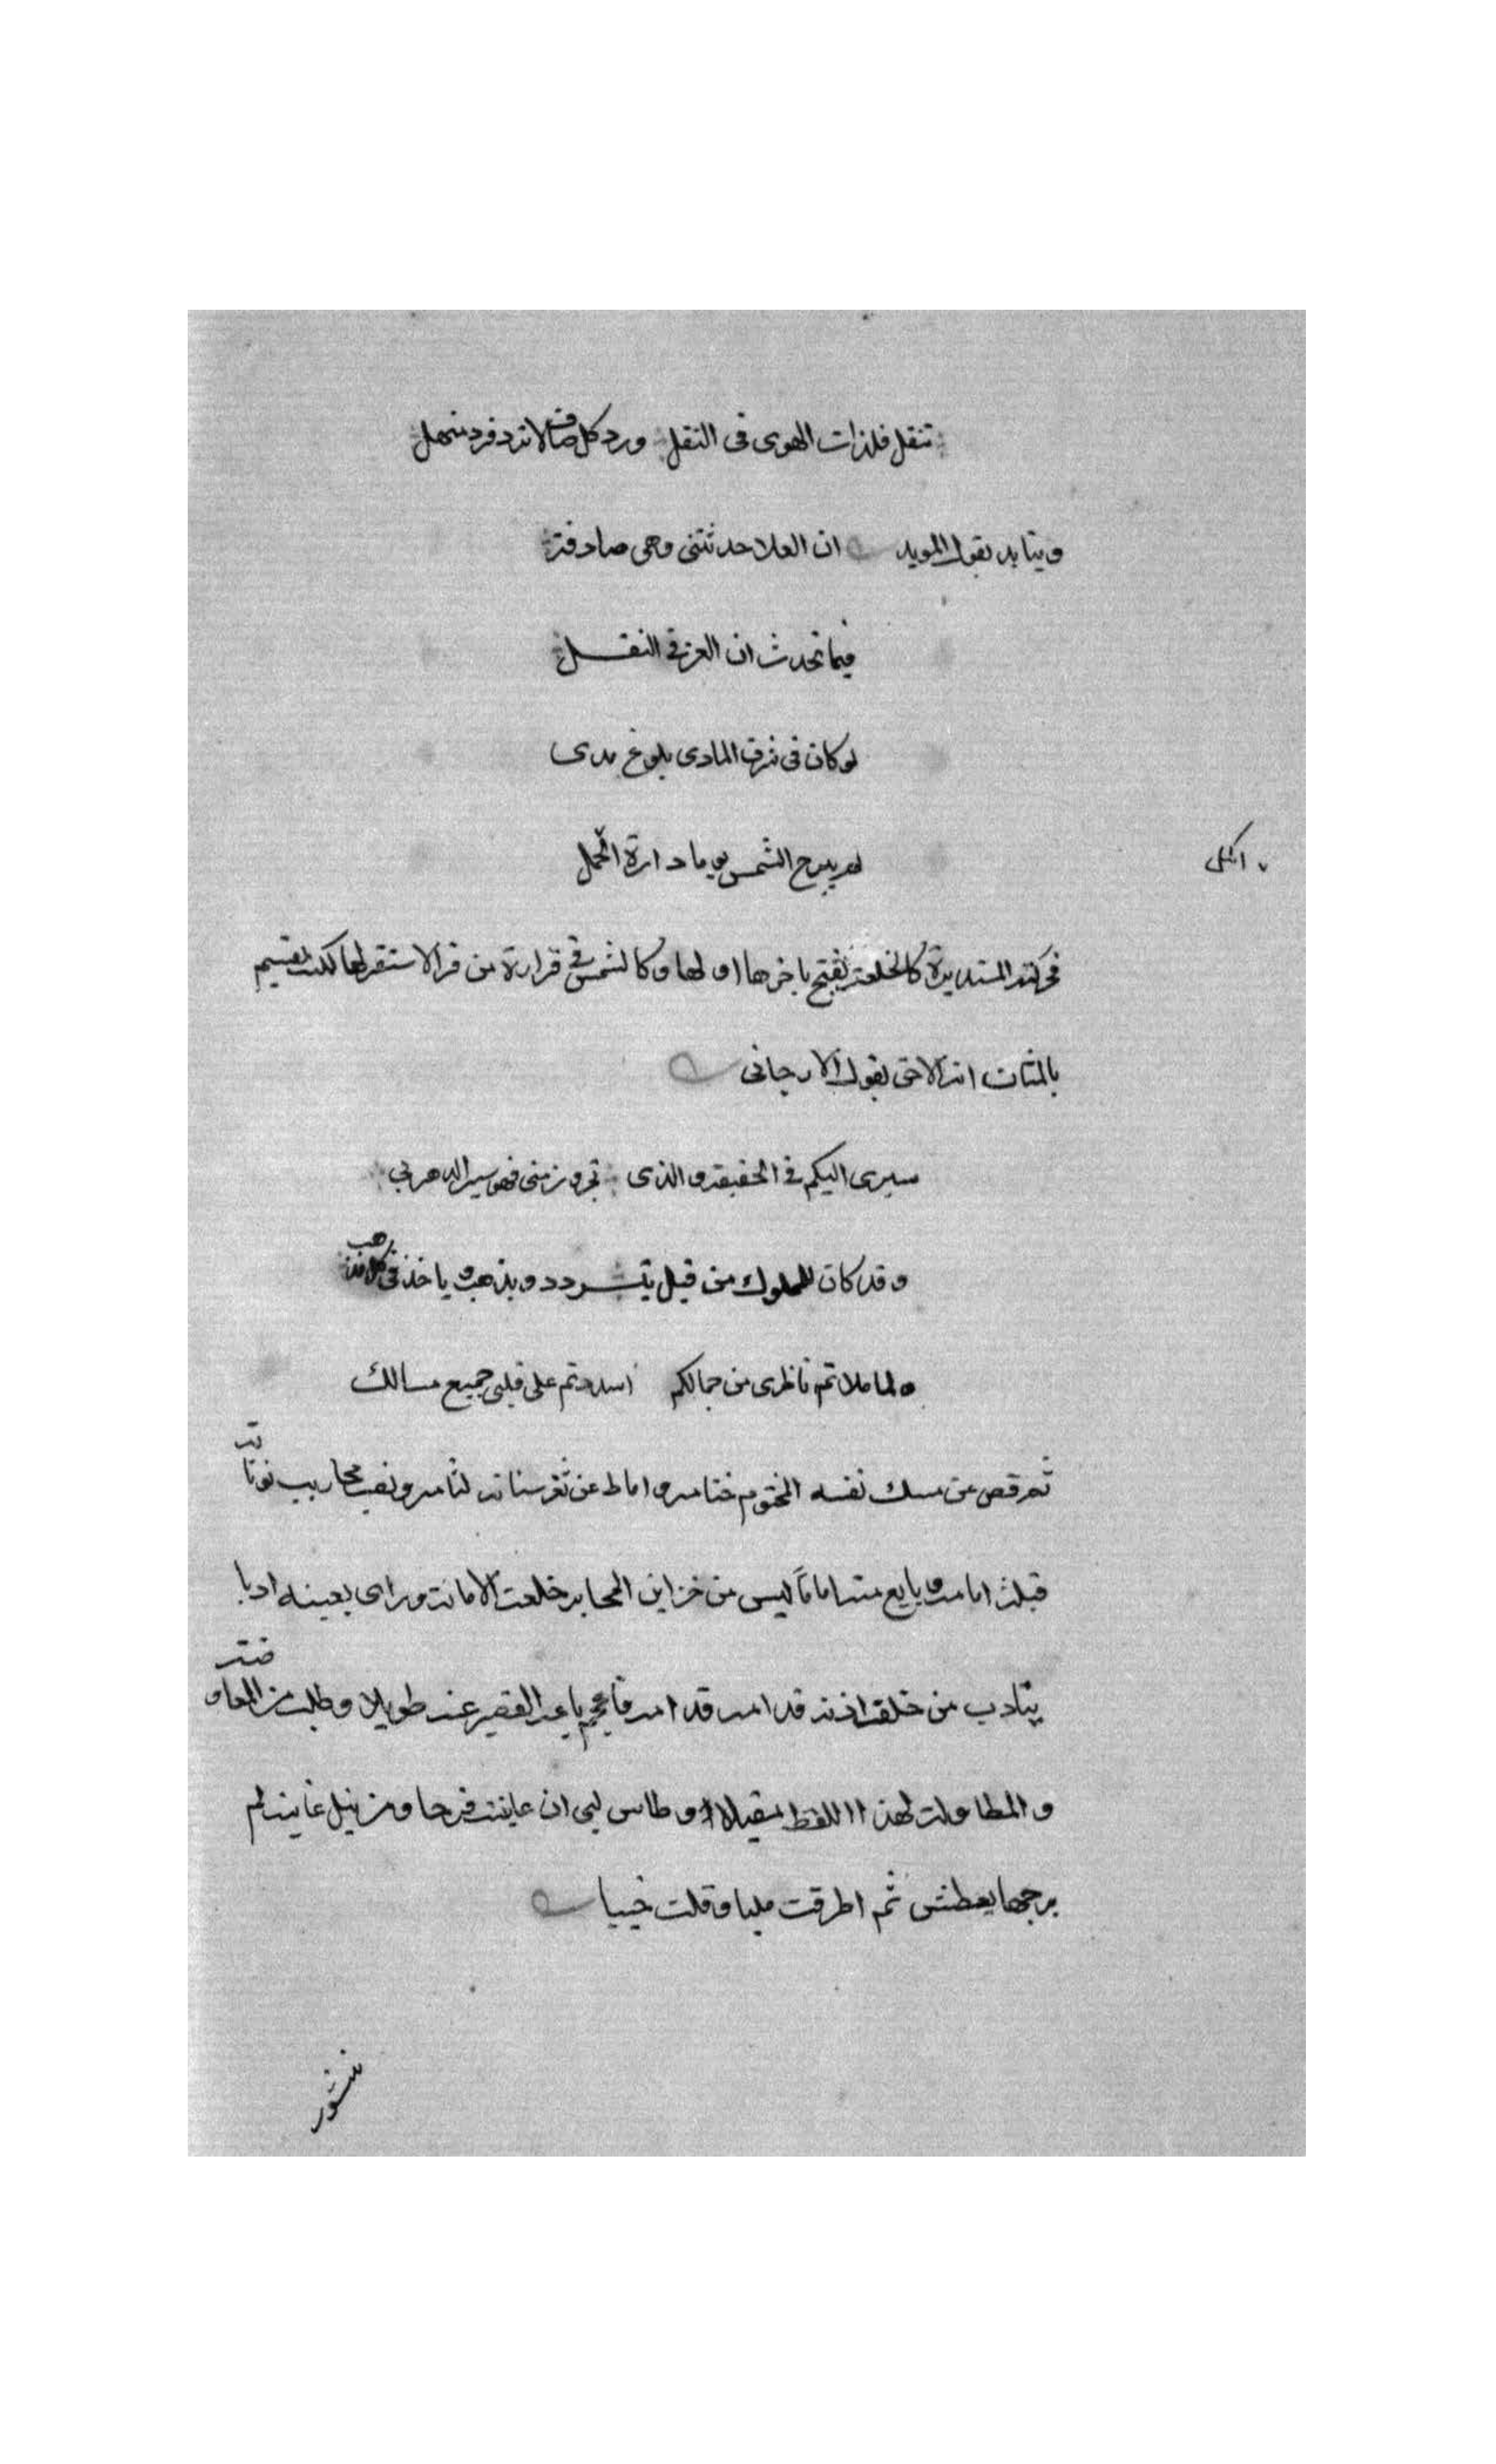 تنقل فلذات الهوى فى التنقل ورد كل صاف لا ترد فرد منهل
ويتايد بقول المويد ان العلا حدثتنى وهى صادقة
فيما تحدث ان العز فى النقل
لو كان فى شرف الماوى بلوغ مدى
لم يبرح الشمس يوما دارة الحمل
المثل
المستديرة كالخلعة باخرها اولها وكالشمس فى قرارة من
بالمثاث انه الاحق بقول الارجانى
سيرى اليكم فى الحقيقة والذى تجدون منى فهو سير الدهر بى
وقد كان للملوك من قبل يتردد ويذهب وياخذ فى كل مذهب
ولما ملاتم ناظرى من جمالكم اسددتم على قلبى جميع مسالك
ثم فض عن مسك نفسه المختوم ختامه واماط عن ثغر لثامه ونصب محاريب نوناته
قبلة امامه وبايع منه اماما ليس من خزاين المحابر خلعة الامامة وراى بعينه ادبا
يتادب من خلقه قدامه قدامه عنه طويلا وطلب من المعاوضة
والمطاولة لهذا اللفظ مقيلا وطاش لبى ان عاينت فرحا ومن نيل غاينه لم
يرجها يعطش ثم اطرقت مليا وقلت
منشور